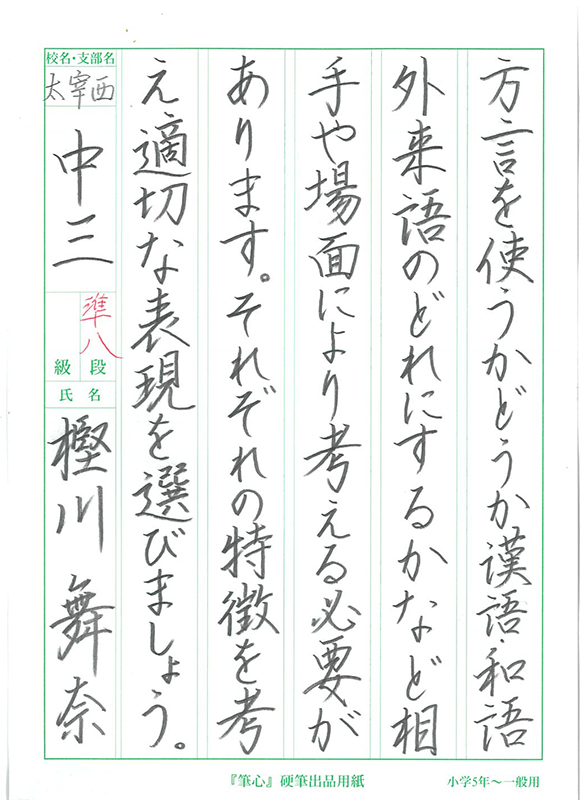 方言を使うかどうか漢語・和語
外来語のどれにするかなど相
手や場面により考える必要が
あります。それぞれの特徴を考
え、適切な表現を選びましょう。
校名・支部名
太宰西
中三
準八
段
級
氏名
樫川舞奈
『筆心』硬筆出品用紙
小学5年〜一般用